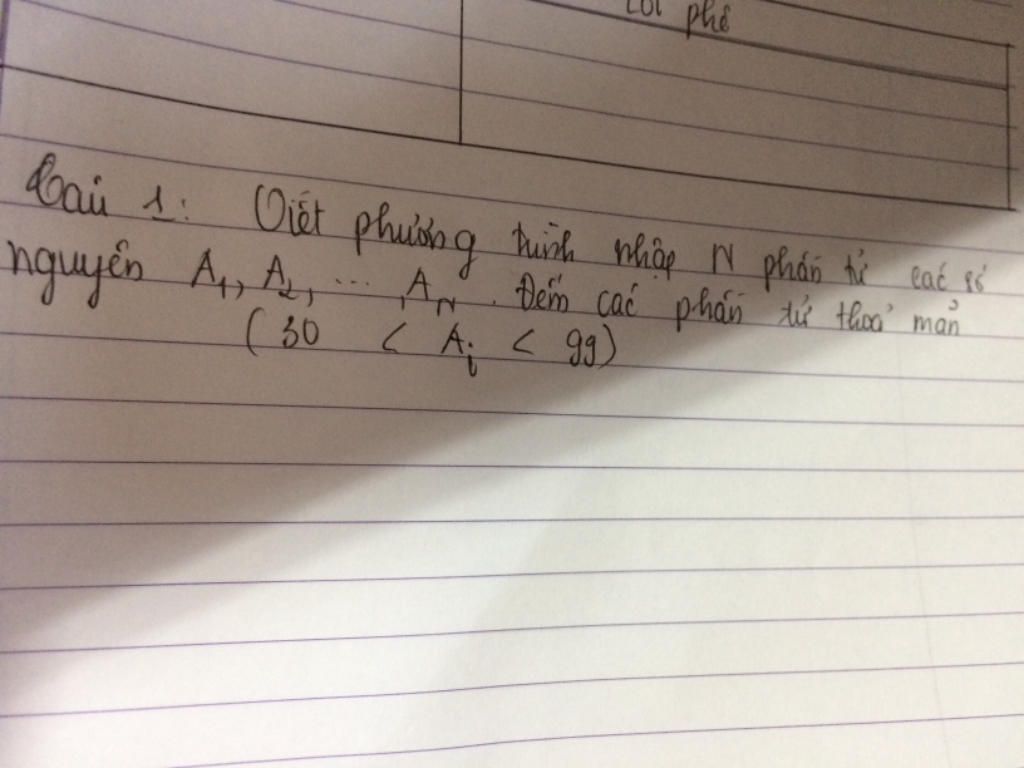 lời phê
Câu 1: Viết phương trình nhập N phần tử các số
nguyên A1, A2, ... , AN. Đếm các phần tử thoả mản
( 30 < Ai < 99)